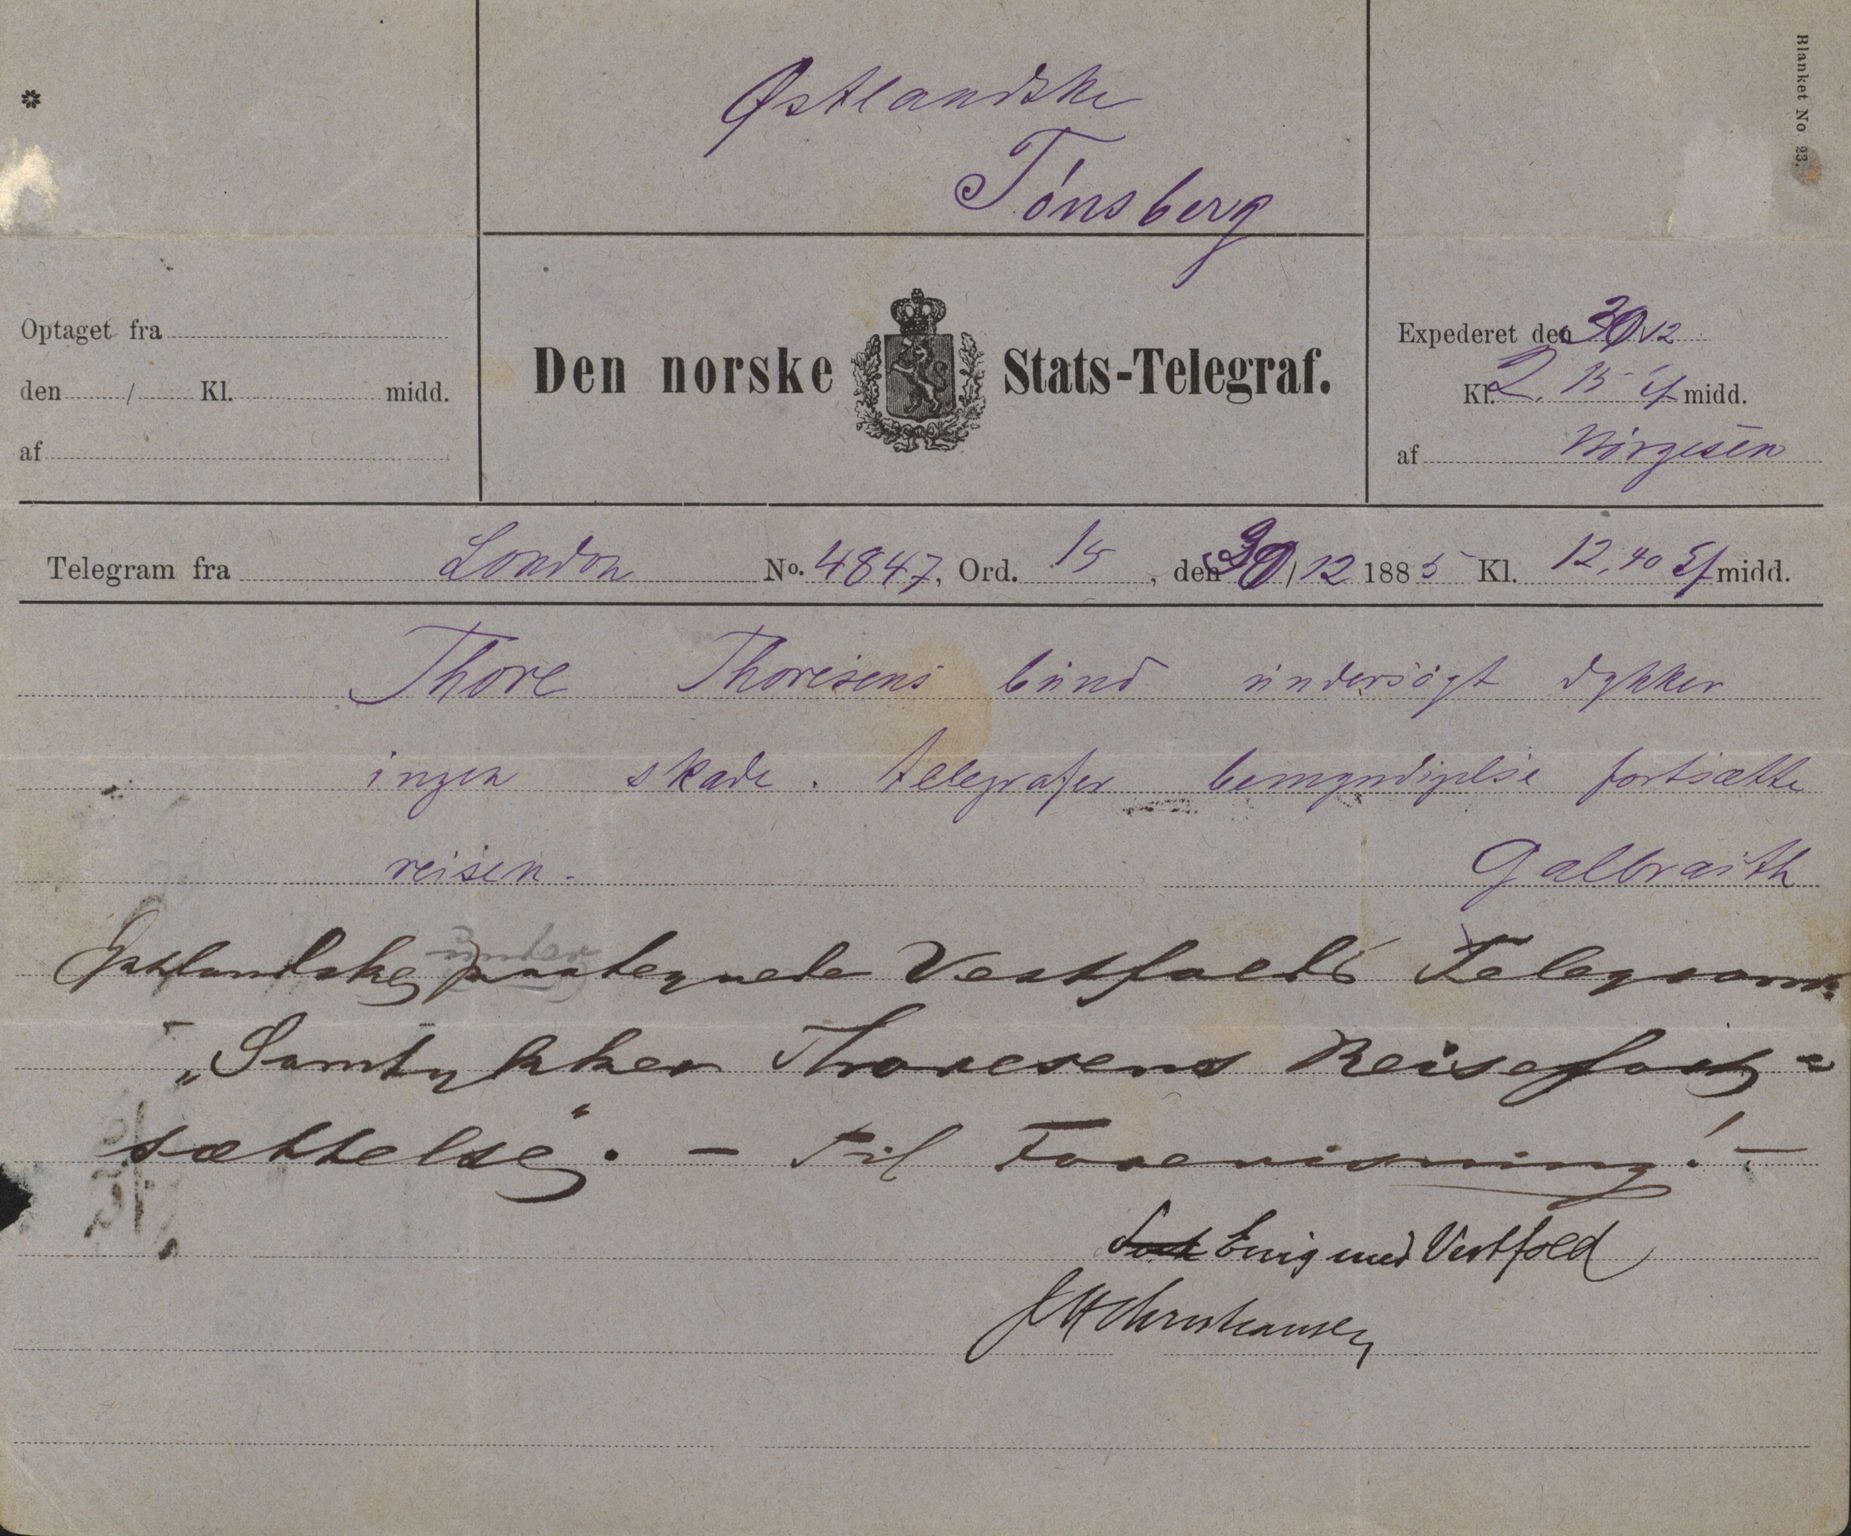 *
Blanket No 23.
Østlandske
Tönsberg
Optaget fra
den / Kl. midd.
af
Den norske Stats-Telegraf.
Expederet den 30/12
Kl. 2.15 Ef midd.
af Börgesen
Telegram fra London No. 4847, Ord. 15, den 30/12 1885 Kl. 12,40 Ef midd.
Thore Thoresens bund undersögt dykker
ingen skade. telegrafer bemyndigelse fortsætte
reisen.
Galbraith
under
Østlandske paategnede Vestfolds Telegram:
"Samtykker Thoresens Reisefort=
sættelse". - Til Forevisning! -
Enig med Vestfold